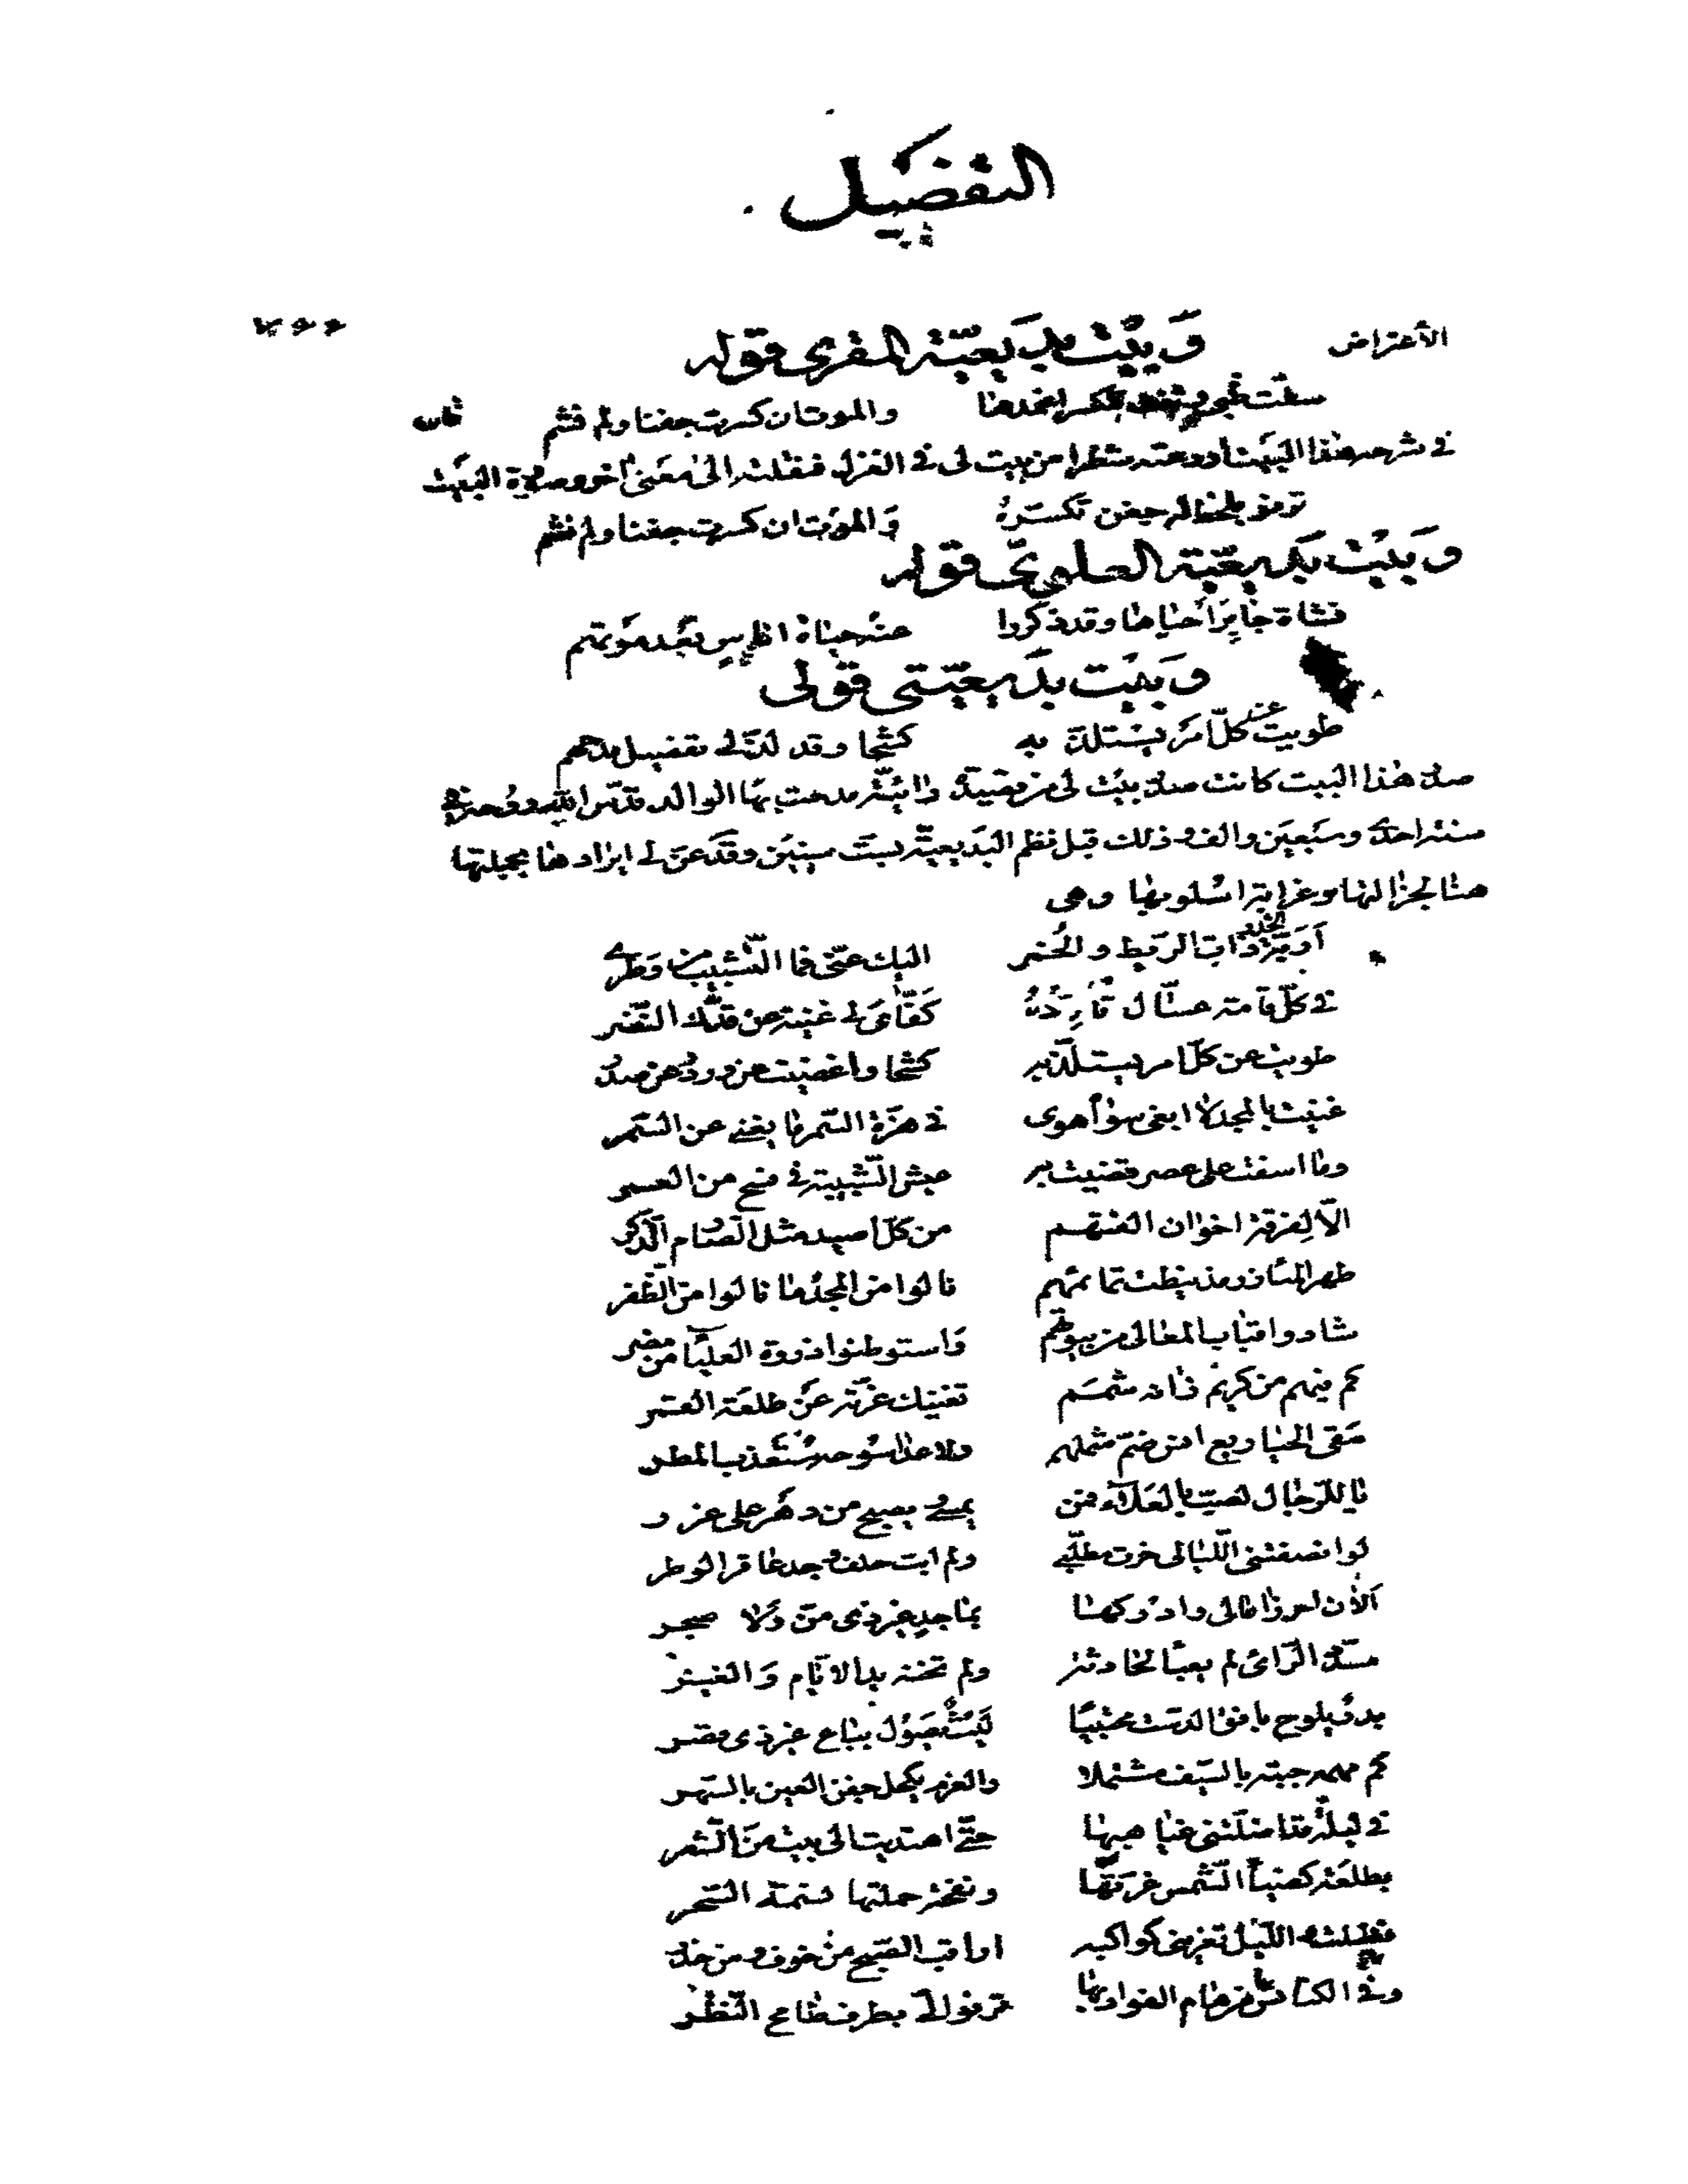 التفضيل
الأعتراض وَبَيْت بديعيّة المقري قوله
والموت ان كسرت جفنا ولم تشم
في شرحه هذا البيت اودعته شطرا من بيت لي في الغزل فنقلته الى معنى اخر وصلاة البيت
ترمق بلحظ له جفن تكسّره وَالموت ان كسرت جفنا ولم تشم
وَبَيْت بَديعيّة العلويّ قوله
حياة بَعْد مَوْتهم
وَبَيْت بدَيعيّتي قولي
طويت عن كلّ امر يستلذّ به كشحا وقد لذّ لي تفضيل مدحهم
صدر هٰذا البيت كانت صدر بيت لي من قصيدة رائيّة مدحت بها الوالد قدّس الله روحه في
سنة احدى وسَبعين والف وذلك قبل نظم البَديعيّة بستّ سنين وقَد عَنّ لي ايرادها بجملتها
هنا لجزالتها وغرابة اسْلوبها وهي
الرّيط والخُمر اليك عنّي فما التّشبيب من وَطري
في كلّ قامة عسّال لي غنية عن قدّك النّضر
طويت عن كلّ امر يستلّذ به كشحا واغضيت عن ورد وعن صدر
غنيت بالمجد لا ابغي سواه هوى في هزّة السّمر ما يغني عن السّمر
وما اسفت على عصر قضيت به عيش الشّبيبة في فسح من العمر
الّا لِفرقة اخوان الفتهم من كلّ اصيد مثل الصّارم الذّكر
طهر المآزر مذ نيطت تمائمهم نالوا من المجد ما نالوا من الظّفر
شادوا قباب المعالي من بيوتهم وَاستوطنوا ذروة العليآ من مضر
كم فيهم من كريم زانه شمَم تغنيك غرّته عَن طلعَة القمر
سَقى الحيا ربع انس ضمّ شملهم ولا عدا سوحه مُستعذب المطر
يا للرّجال لصبّ بالعَلآء فتن يمسي ويصبح من دهر على غرر
لو انصفتني اللّيالي حزت مطلبي ولم ابت حلف وجد عاقر الوطر
بماجد غير ذي منّ وَلا ضجر
مسدّد الرّأي لم يعبأ لحادثة ولم تخنه يد الايّام وَالغير
بدر يلوح بافق الدست محتبيًا لَيْث يصُول بباع غير ذي قصر
كم مهمه جبته بالسّيف مشتملا والعزم يكحل جفن العين بالسّهر
في ليلة قد اضلّتني غياهبها حتّى اهتديت الى بيت من الشّعر
بطلعَة كضيآ الشّمس غرّتها ونفحة حملتها نسمة السّحر
فظلت واللّيل تغريني كواكبه اراقب الصّبح من خوف ومن حذر
وفي الكناس من هام الفواد بها ترنو اليّ بطرف طامح النّظر